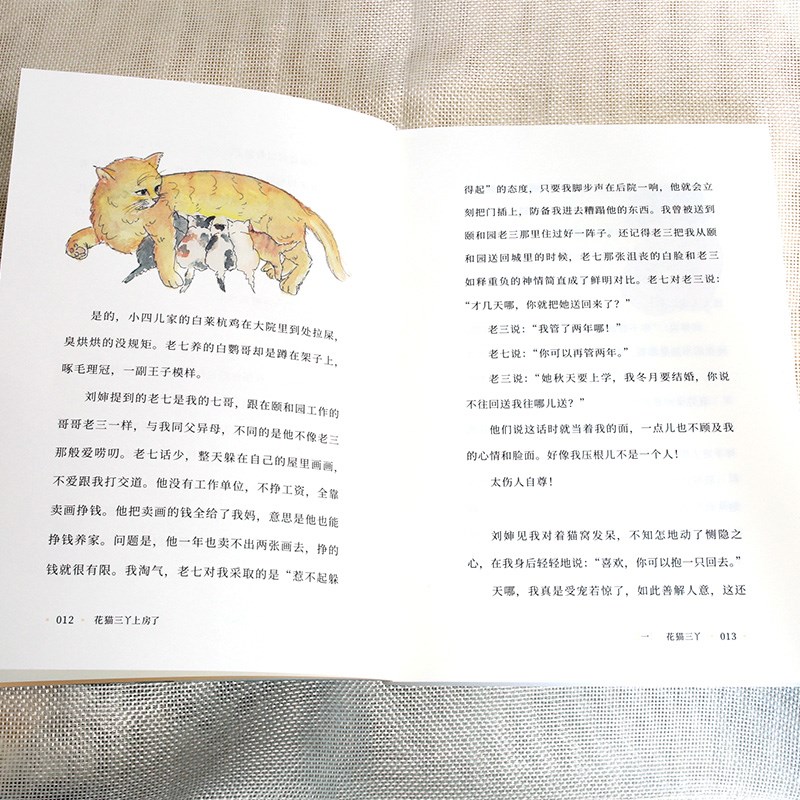 是的，小四儿家的白莱杭鸡在大院里到处拉屎，
臭烘烘的没规矩。老七养的白鹦哥却是蹲在架子上，
啄毛理冠，一副王子模样。
刘婶提到的老七是我的七哥，跟在颐和园工作的
哥哥老三一样，与我同父异母，不同的是他不像老三
那般爱唠叨。老七话少，整天躲在自己的屋里画画，
不爱跟我打交道。他没有工作单位，不挣工资，全靠
卖画挣钱。他把卖画的钱全给了我妈，意思是他也能
挣钱养家。问题是，他一年也卖不出两张画去，挣的
钱就很有限。我淘气，老七对我采取的是“惹不起躲
012 花猫三丫上房了
得起”的态度，只要我脚步声在后院一响，他就会立
刻把门插上，防备我进去糟蹋他的东西。我曾被送到
颐和园老三那里住过好一阵子。还记得老三把我从颐
和园送回城里的时候，老七那张沮丧的白脸和老三
如释重负的神情简直成了鲜明对比。老七对老三说：
“才几天哪，你就把她送回来了？”
老三说：“我管了两年哪！”
老七说：“你可以再管两年。”
老三说：“她秋天要上学，我冬月要结婚，你说
不往回送我往哪儿送？”
他们说这话时就当着我的面，一点儿也不顾及我
的心情和脸面。好像我压根儿不是一个人！
太伤人自尊！
刘婶见我对着猫窝发呆，不知怎地动了恻隐之
心，在我身后轻轻地说：“喜欢，你可以抱一只回去。”
天哪，我真是受宠若惊了，如此善解人意，这还
一 花猫三丫 013